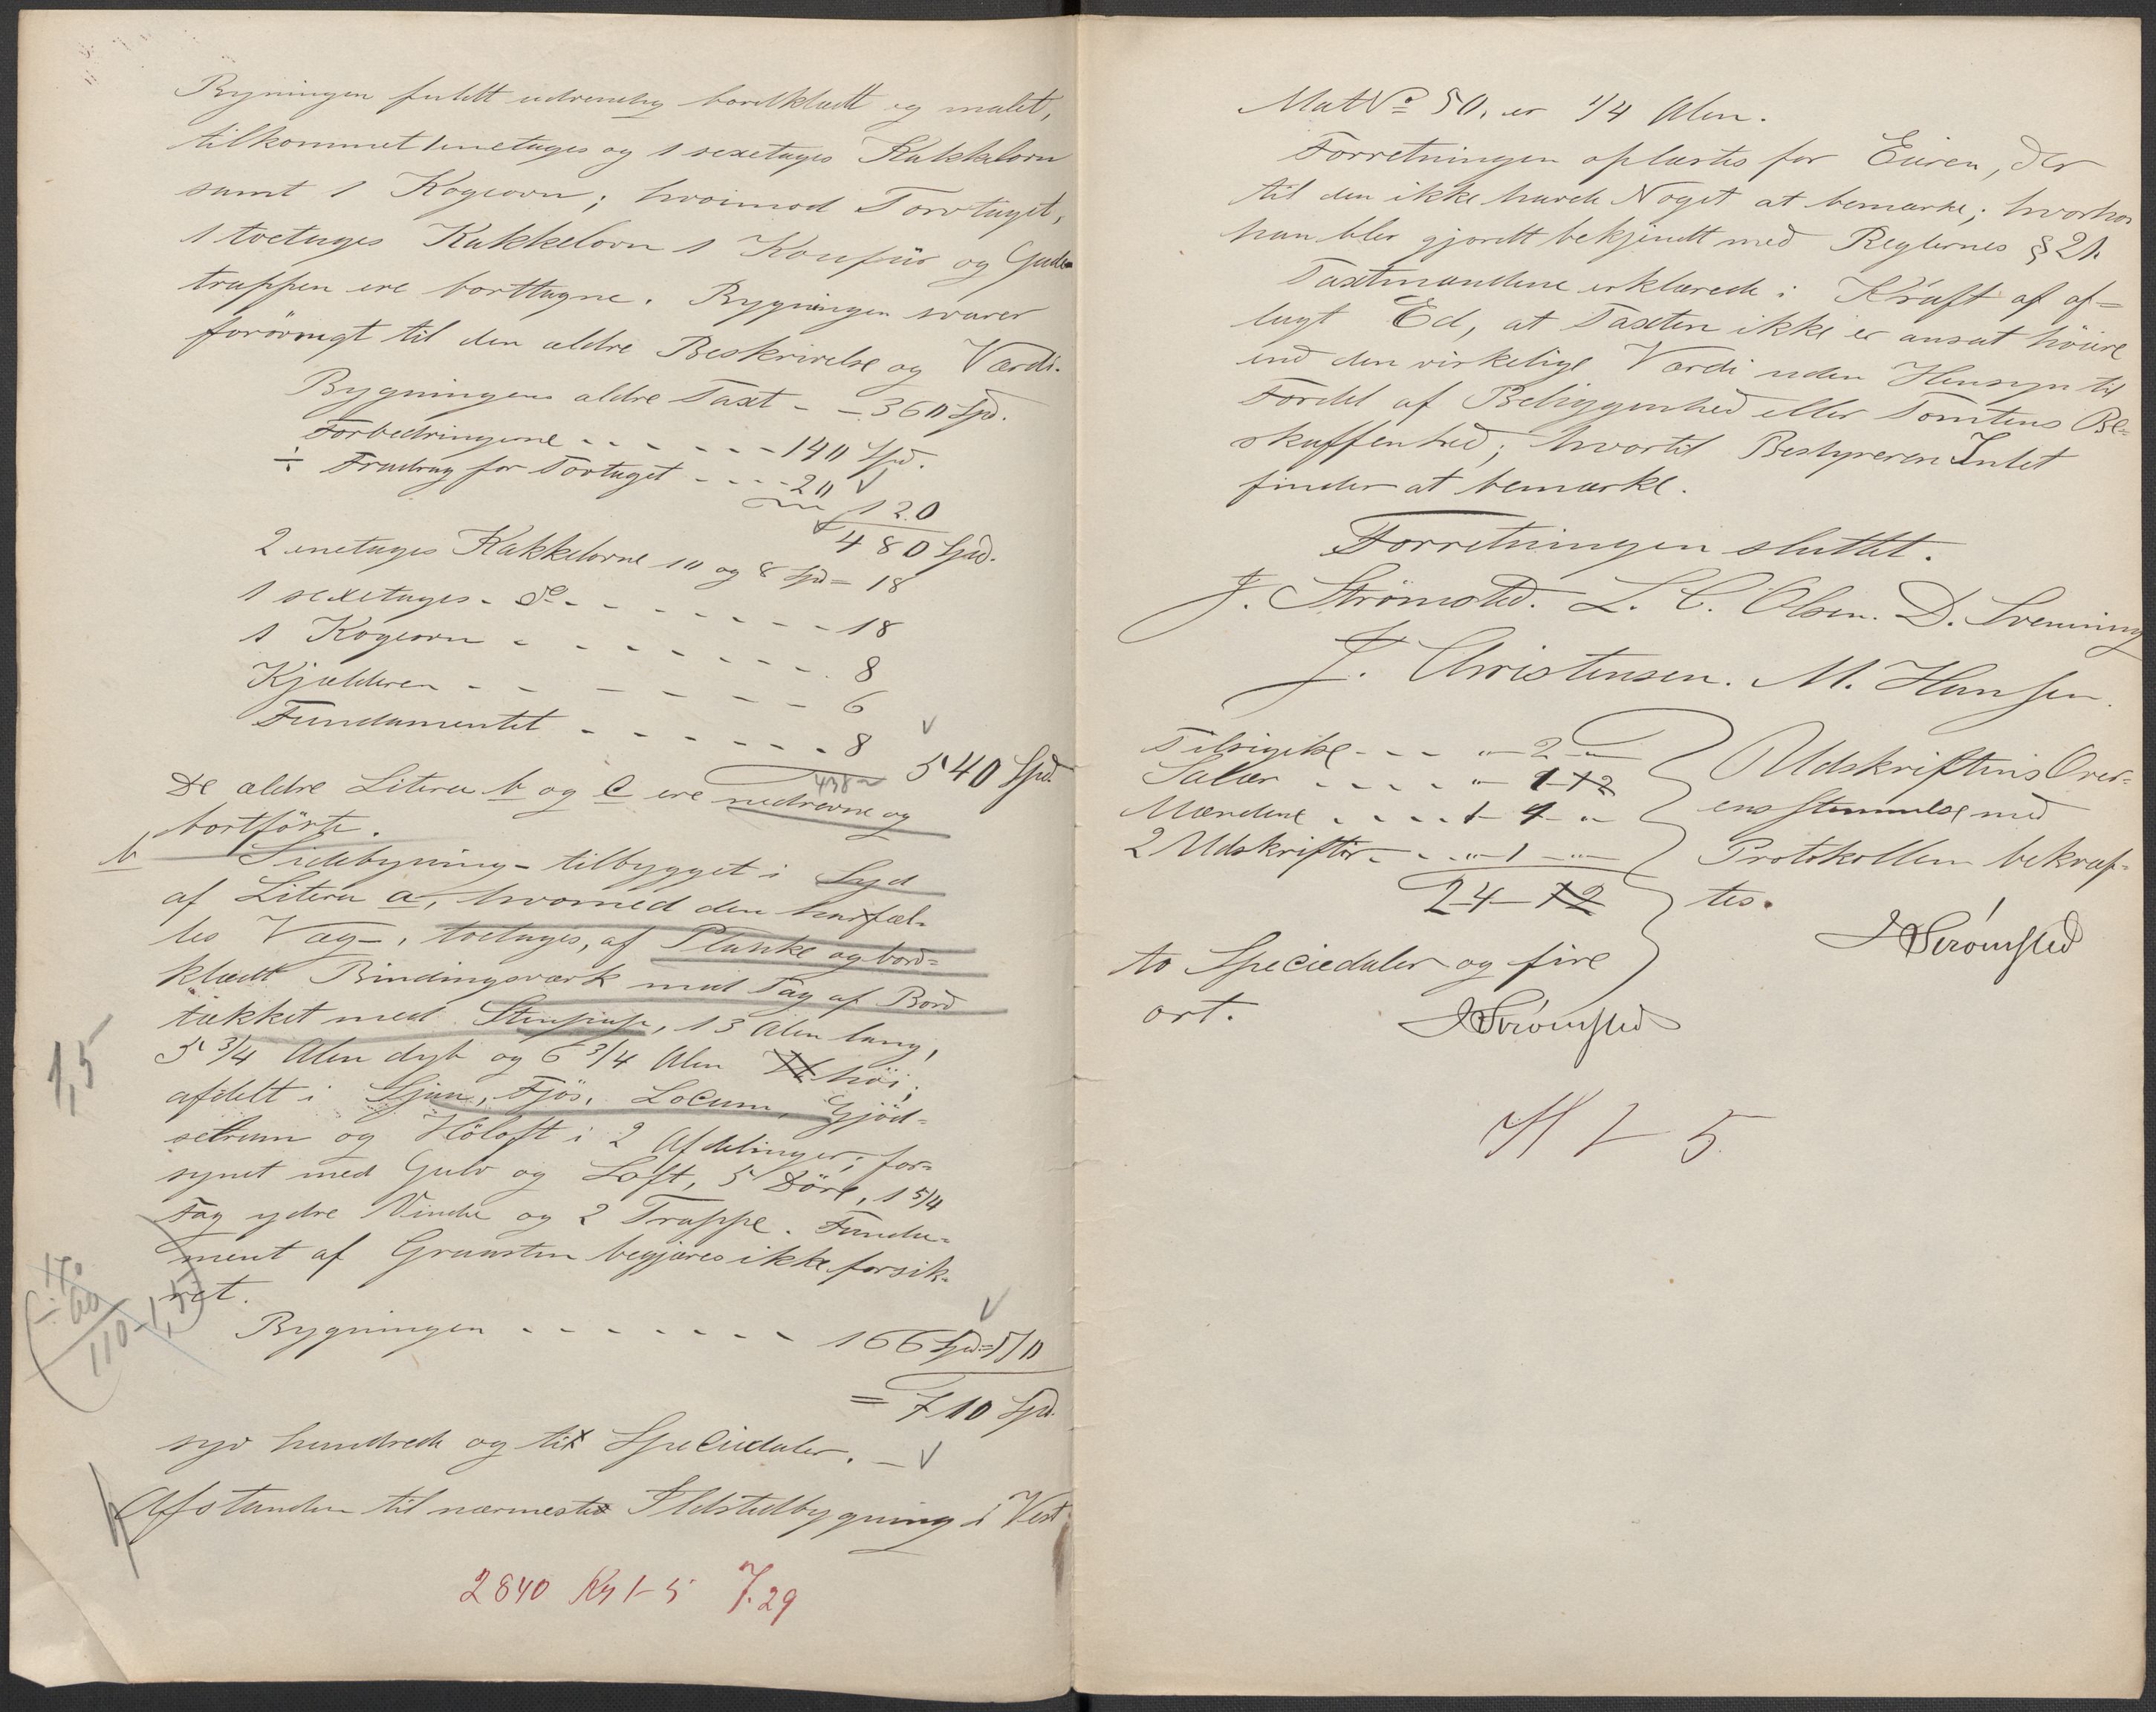 Bygningen fuldt udvendig bordklædt og malet,
tilkommet 1 enetages og 1 sexetages Kakkelovn
samt 1 Kogeovn; hvorimod Torvtaget,
1 toetages Kakkelovn 1 Komfür og Gade-
trappen ere borttagne. Bygningen svarer
forövrigt til den ældre Beskrivelse og Værdi.
Bygningens ældre Taxt - - 360 Spd.
Forbedringerne - - - - - - 140 Spd.
÷ Fradrag for Torvtaget - - - - 20
120
480 Spd.
2 enetages Kakkelovne 10 og 8 Spd = 18
1 sexetages - do - - - - - - - 18
1 Kogeovn - - - - - - - - 8
Kjælderen - - - - - - - 6
Fundamentet - - - - - - - 8
540 Spd
438
De ældre Litera b og c ere nedrevne og
bortförte.
b Sidebygning - tilbygget i Syd
af Litera a, hvormed den har fæl-
les Væg -, toetages, af Planke og bord-
klædt Bindingsværk med Tag af Bord
tækket med Stenpap, 13 Alen lang,
1,5
5 3/4 Alen dyb og 6 3/4 Alen höi;
afdelt i Fjös, Locum, Gjöd-
selrum og Höloft i 2 Afdelinger; for-
synet med Gulv og Loft, 5 Döre, 1 5/4
Fag ydre Vindu og 2 Trappe. Funda-
ment af Graasten begjæres ikke forsik-
ret.
170
÷ 60
110 - 1,5
Bygningen - - - - - - - 166 Spd = 170
= 710 Spd.
syv hundrede og ti Speciedaler. -
Afstanden til nærmeste Ildstedbygning i Vest
2840 Kr 1-5 7.29
Mat No 50, er 1/4 Alen.
Forretningen oplæstes for Eieren, der
til den ikke havde Noget at bemærke; hvorhos
han blev gjordt bekjendt med Reglernes § 21.
Taxtmændene erklærede i Kraft af af-
lagt Ed, at Taxten ikke er ansat höiere
end den virkelige Værdi uden Hensyn til
Fordel af Beliggenhed eller Tomtens Be-
skaffenhed; hvortil Bestyreren Intet
finder at bemærke.
Forretningen sluttet.
J. Strömsted. L. C. Olsen. D. Svenning
J. Christensen. M. Hansen.
Tilsigelse - - - " - 2 - "
Salær - - - - - " - 1 - 12
Mændene - - - - 1 - 4 - "
2 Udskrifter - - - " - 1 - "
2 - 4 - 12
to Speciedaler og fire
ort.
JStrömsted
Udskriftens Over-
ensstemmelse med
Protokollen bekræf-
tes.
JStrömsted
H 1 - 5